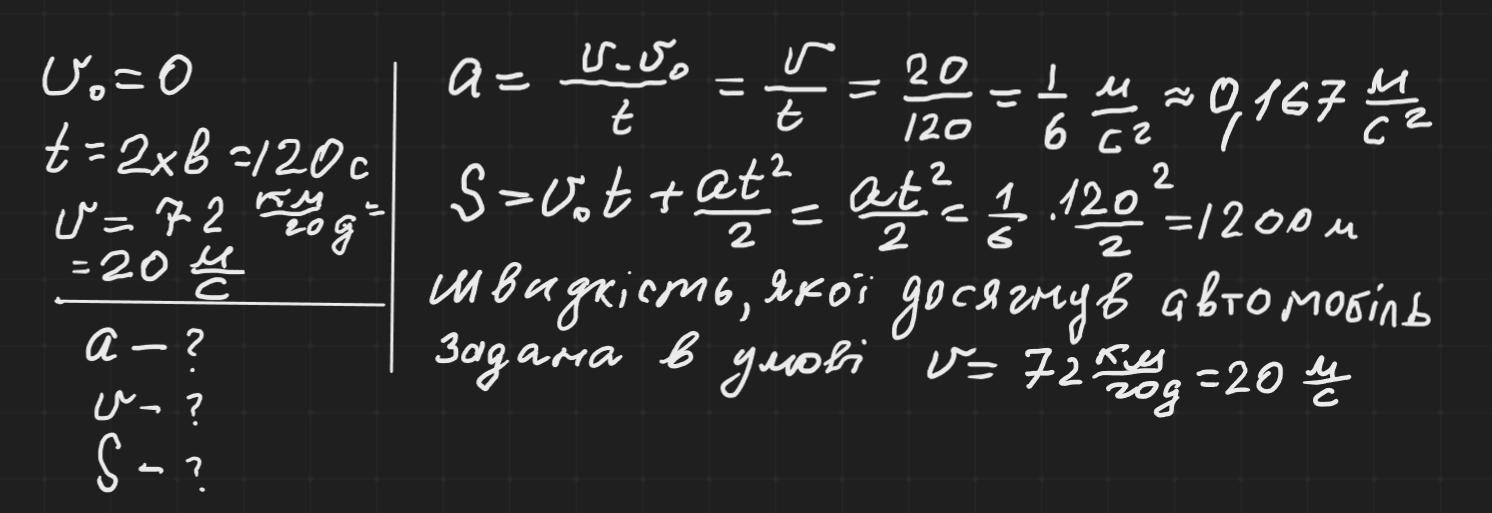 υ₀ = 0
t = 2 хв = 120 с
υ = 72 км/год =
= 20 м/с
a – ?
υ – ?
S – ?
a = (υ - υ₀)/t = υ/t = 20/120 = 1/6 м/с² ≈ 0,167 м/с²
S = υ₀t + at²/2 = at²/2 = 1/6 · 120²/2 = 1200 м
швидкість, якої досягнув автомобіль
задана в умові υ = 72 км/год = 20 м/с